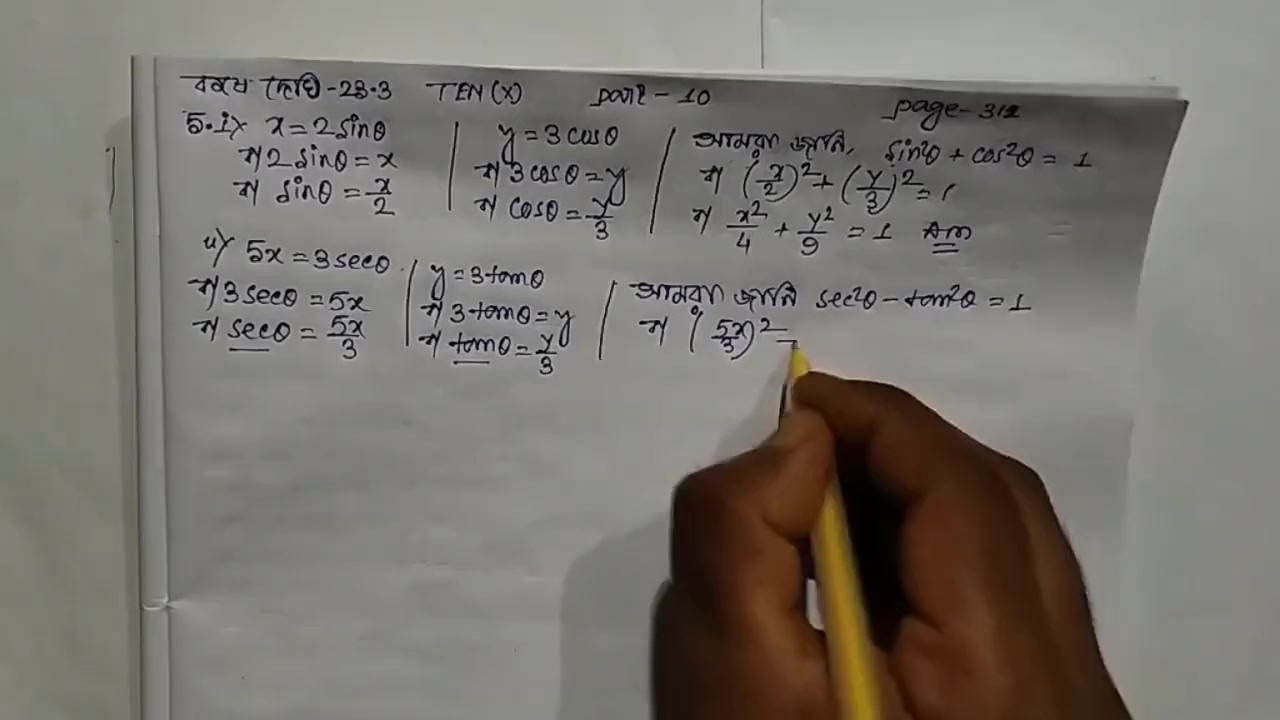 কষে দেখি-23.3 TEN (X) part-10 page-312
5.i) x = 2 sinθ
⇒ 2 sinθ = x
⇒ sinθ = x/2
y = 3 cosθ
⇒ 3 cosθ = y
⇒ cosθ = y/3
আমরা জানি, sin²θ + cos²θ = 1
⇒ (x/2)² + (y/3)² = 1
⇒ x²/4 + y²/9 = 1 Ans
ii) 5x = 3 secθ
⇒ 3 secθ = 5x
⇒ secθ = 5x/3
y = 3 tanθ
⇒ 3 tanθ = y
⇒ tanθ = y/3
আমরা জানি sec²θ - tan²θ = 1
⇒ (5x/3)² -